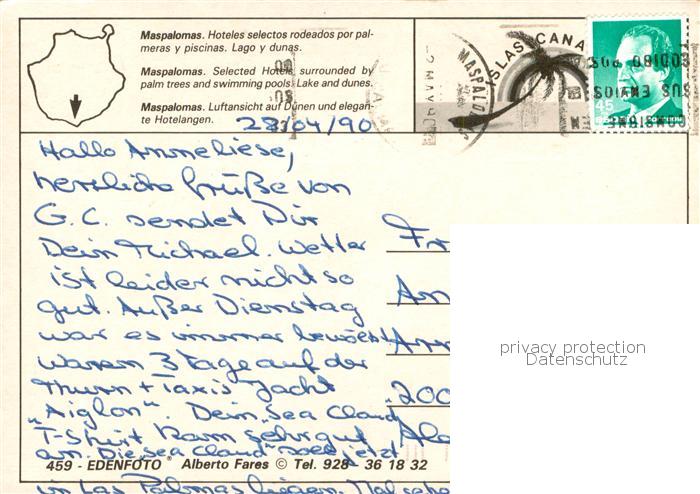 Maspalomas. Hoteles selectos rodeados por pal-
meras y piscinas. Lago y dunas.
Maspalomas. Selected Hotels surrounded by
palm trees and swimming pools. Lake and dunes.
Maspalomas. Luftansicht auf Dünen und elegan-
te Hotelangen.
28/04/90
MASPALO
ISLAS CANA
45
CODIGO POS
SUS ENVIOS
CONSIGNE
Hallo Anneliese,
herzliche Grüße von
G.C. sendet Dir
Dein Michael. Wetter
ist leider nicht so
gut. Außer Dienstag
war es immer bewölkt
waren 3 Tage auf der
Thurn + Taxis Jacht
„Aiglon". Dein „Sea Cloud"
T-Shirt kam sehr gut
an. Die „Sea Cloud" soll jetzt
in Las Palmas liegen. Mal sehen
Fr
An
Am
200
privacy protection
Datenschutz
459 - EDENFOTO ® Alberto Fares © Tel. 928 - 36 18 32